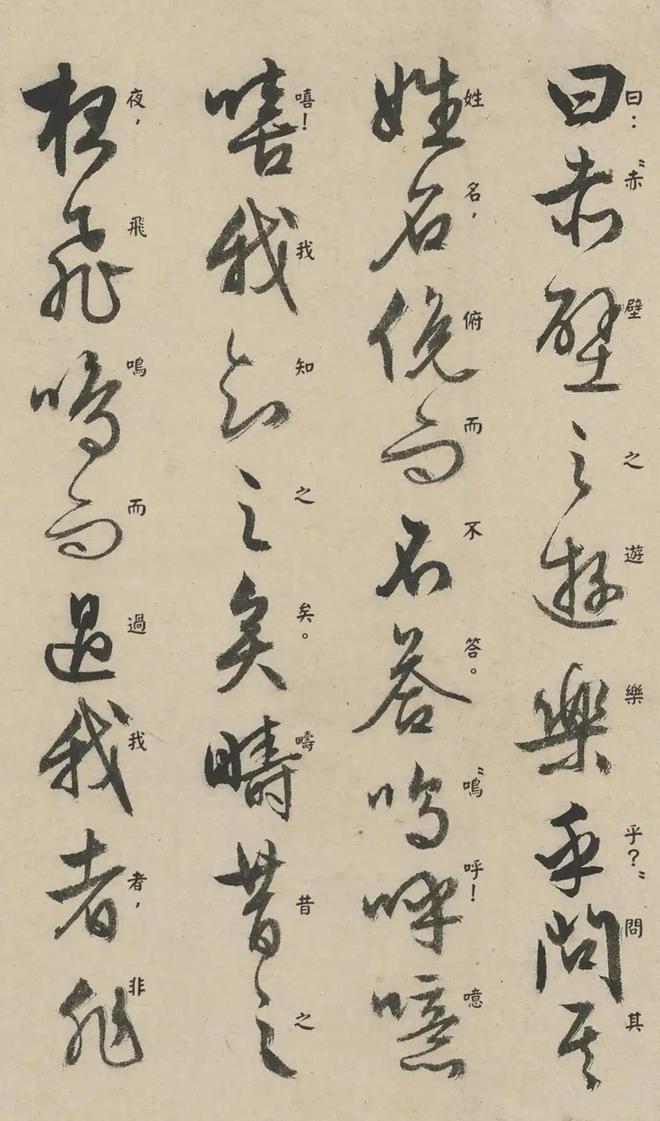 曰赤壁之遊樂乎問其
曰：“赤壁之遊樂乎？”問其
姓名俛而不答嗚呼噫
姓名，俯而不答。“嗚呼！噫
嘻我知之矣疇昔之
嘻！我知之矣。疇昔之
夜飛鳴而過我者非
夜，飛鳴而過我者，非